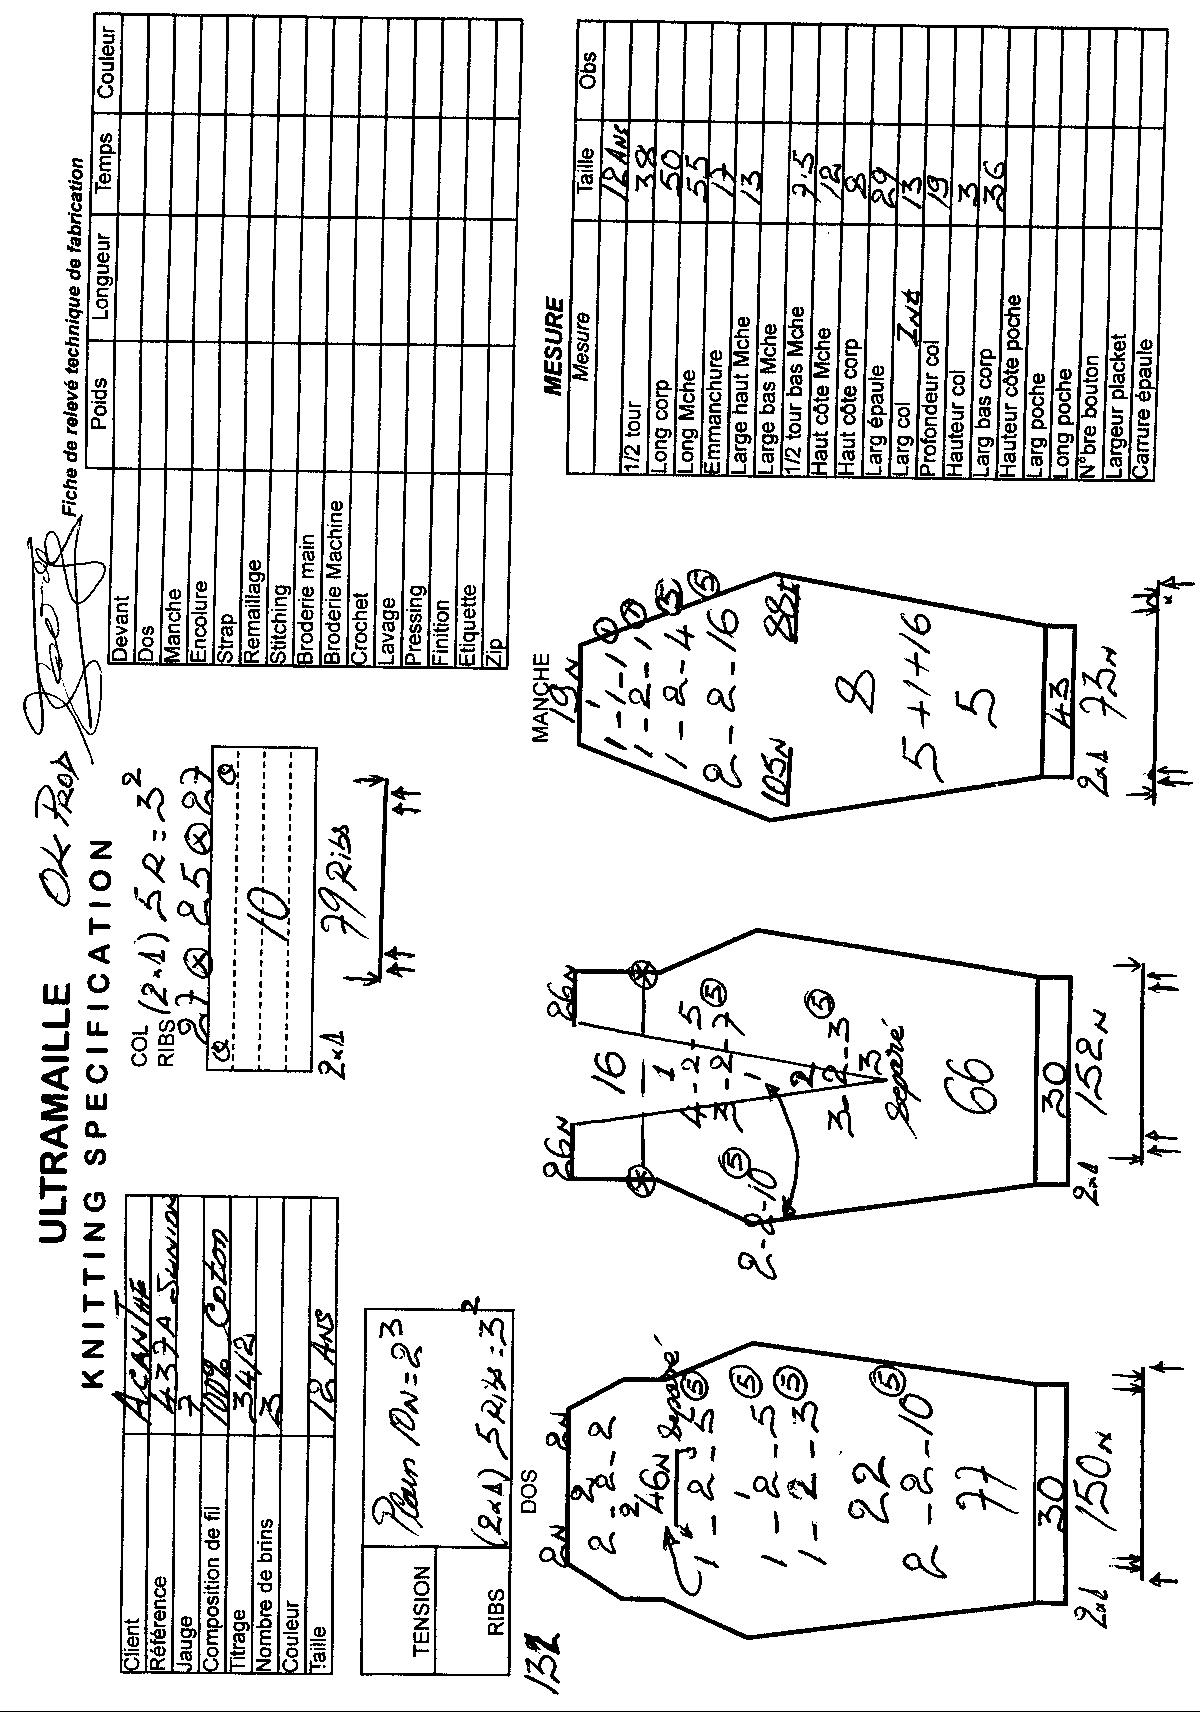 ULTRAMAILLE OK PROD
KNITTING SPECIFICATION
Client ACANTHE
Référence 437A SUNION
Jauge 7
Composition de fil 100% COTON
Titrage 34/2
Nombre de brins 3
Couleur
Taille 12 ANS
COL
RIBS (2x1) 5R = 3²
27 ⊗ 25 ⊗ 27
10
2x1 79 Ribs
Fiche de relevé technique de fabrication
Poids Longueur Temps Couleur
Devant
Dos
Manche
Encolure
Strap
Remaillage
Stitching
Broderie main
Broderie Machine
Crochet
Lavage
Pressing
Finition
Etiquette
Zip
TENSION Plain 10N = 2³
RIBS (2x1) 5 Ribs = 3²
132
DOS
2N 2N
2
2 - 2 - 2
2
46N Separé
1 - 2 - 5 ⑤
1
1 - 2 - 5 ⑤
1 - 2 - 3 ⑤
22
2 - 2 - 10 ⑤
77
30
2x1 150N
26N 26N
16
1
4 - 2 - 5
3 - 2 - 7 ⑤
1
2-2-10 ⑤
2
3 - 2 - 3 ⑤
3
Separé
66
30
2x1 152N
MANCHE
19N
1
1 - 1 - 1 ①
1 - 2 - 1
1 - 2 - 4 ⑤
2 - 2 - 16 ⑤
105N 88I
8
5+1+16
5
43
2x1 73N
MESURE
Mesure Taille Obs
12 ANS
1/2 tour 38
Long corp 50
Long Mche 55
Emmanchure 17
Large haut Mche 13
Large bas Mche
1/2 tour bas Mche 7.5
Haut côte Mche 12
Haut côte corp 8
Larg épaule 29
Larg col INt 13
Profondeur col 19
Hauteur col 3
Larg bas corp 36
Hauteur côte poche
Larg poche
Long poche
N°bre bouton
Largeur placket
Carrure épaule